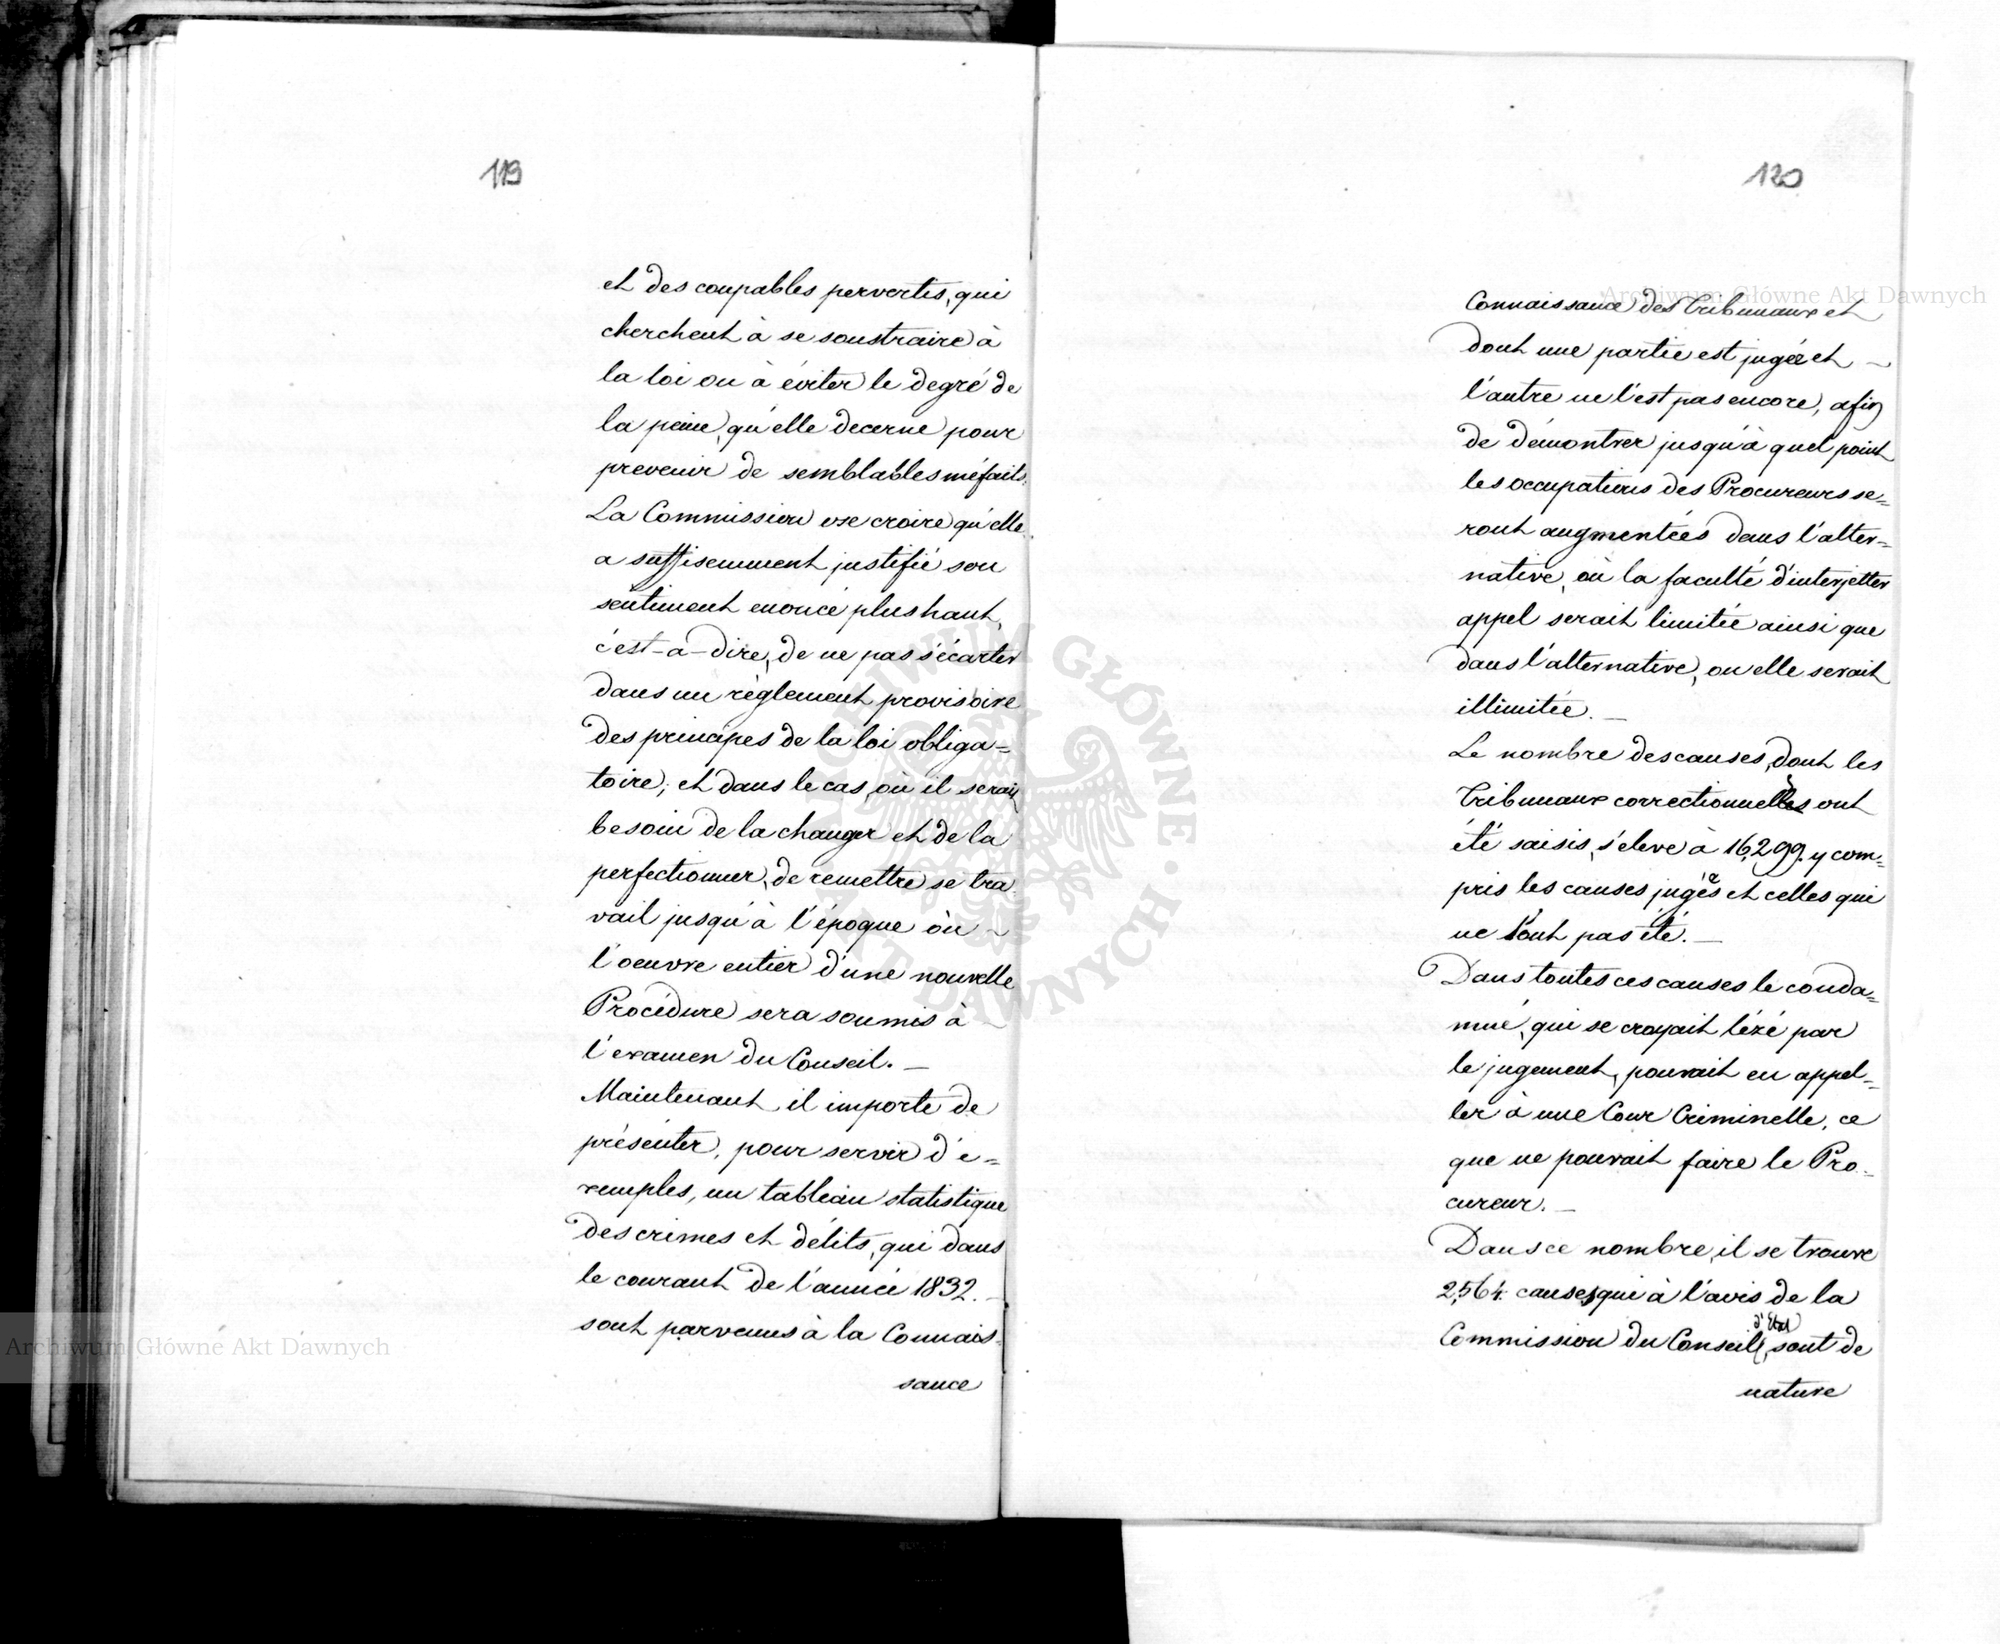 119
et des coupables pervertis, qui
cherchent à se soustraire à
la loi ou à éviter le degré de
la peine, qu'elle decerne pour
prevenir de semblables méfaits.
La Commission ose croire qu'elle
a suffisemment justifié son
sentiment enoncé plus haut,
c'est-a-dire, de ne pas s'écarter
dans un règlement provisoire
des principes de la loi obliga=
toire; et dans le cas, où il serait
besoin de la changer et de la
perfectionner, de remettre se tra
vail jusqu'à l'époque où ~
l'oeuvre entier d'une nouvelle
Procédure sera soumis à ~
l'examen du Conseil. —
Maintenant, il importe de
présenter, pour servir d'e=
xemples, un tableau statistique
des crimes et délits, qui dans
le courant de l'année 1832. —
sont parvenus à la Connais=
sance
120
Connaissance des Tribunaux et
dont une partie est jugée et ~
l'autre ne l'est pas encore, afin
de démontrer jusqu'à quel point
les occupations des Procureurs se=
ront augmentées dans l'alter=
native, où la faculté d'interjetter
appel serait limitée ainsi que
dans l'alternative, ou elle serait
illimitée. —
Le nombre des causes, dont les
Tribunaux correctionnelles ont
été saisis, s'éleve à 16,299. y com=
pris les causes jugées et celles qui
ne l'ont pas été. —
Dans toutes ces causes le conda=
mné, qui se croyait lézé par
le jugement, pouvait en appel=
ler à une Cour Criminelle, ce
que ne pouvait faire le Pro=
cureur. —
Dans ce nombre, il se trouve
2,564. causes, qui à l'avis de la
Commission du Conseil d'Etat, sont de
nature
Archiwum Główne Akt Dawnych
Archiwum Główne Akt Dawnych
ARCHIWUM GŁÓWNE AKT DAWNYCH